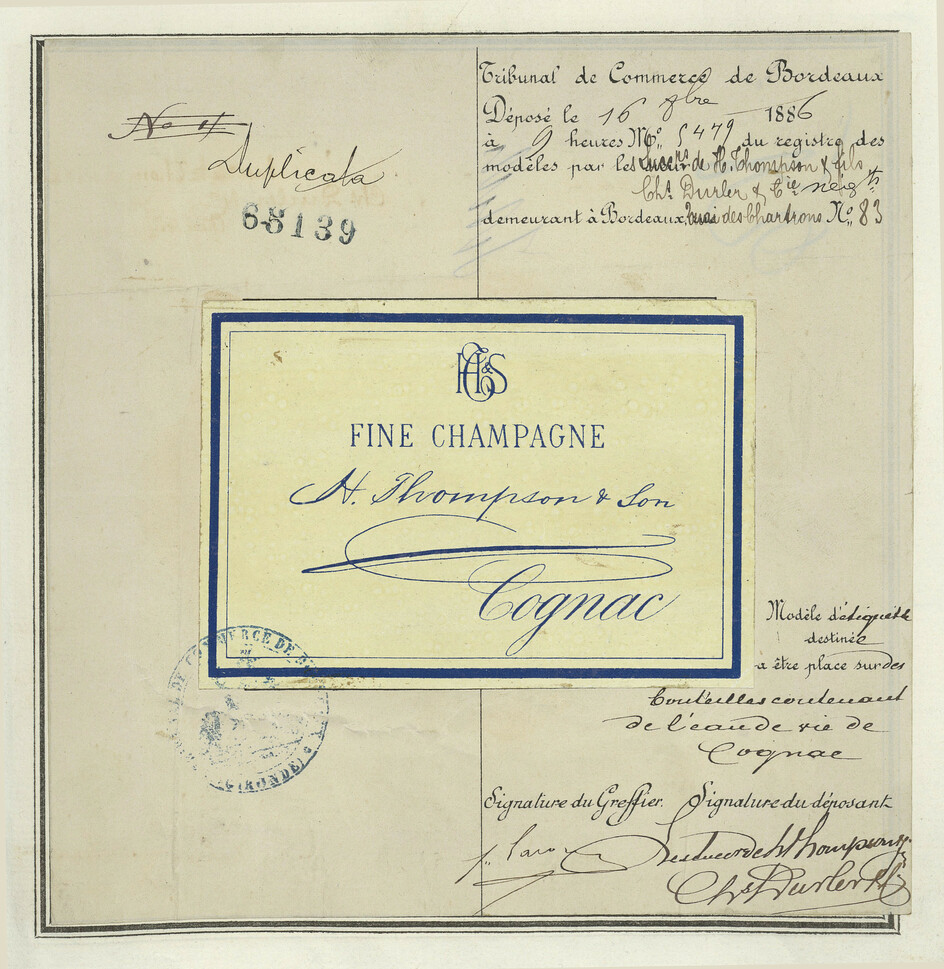 Tribunal de Commerce de Bordeaux
Déposé le 16 8bre 1886
à 9 heures No. 5479 du registre des
modèles par les succrs de H. Thompson & fils
Chs. Durler & Cie négts
demeurant à Bordeaux, quai des Chartrons No. 83
No 4
Duplicata
68139
H T & S
FINE CHAMPAGNE
H. Thompson & Son
Cognac
Modèle d'étiquette
destinée
a être place sur des
bouteilles contenant
de l'eau de vie de
Cognac
COMMERCE DE
(GIRONDE)
Signature du Greffier. Signature du déposant
Les succrs de H Thompson
Chs Durler